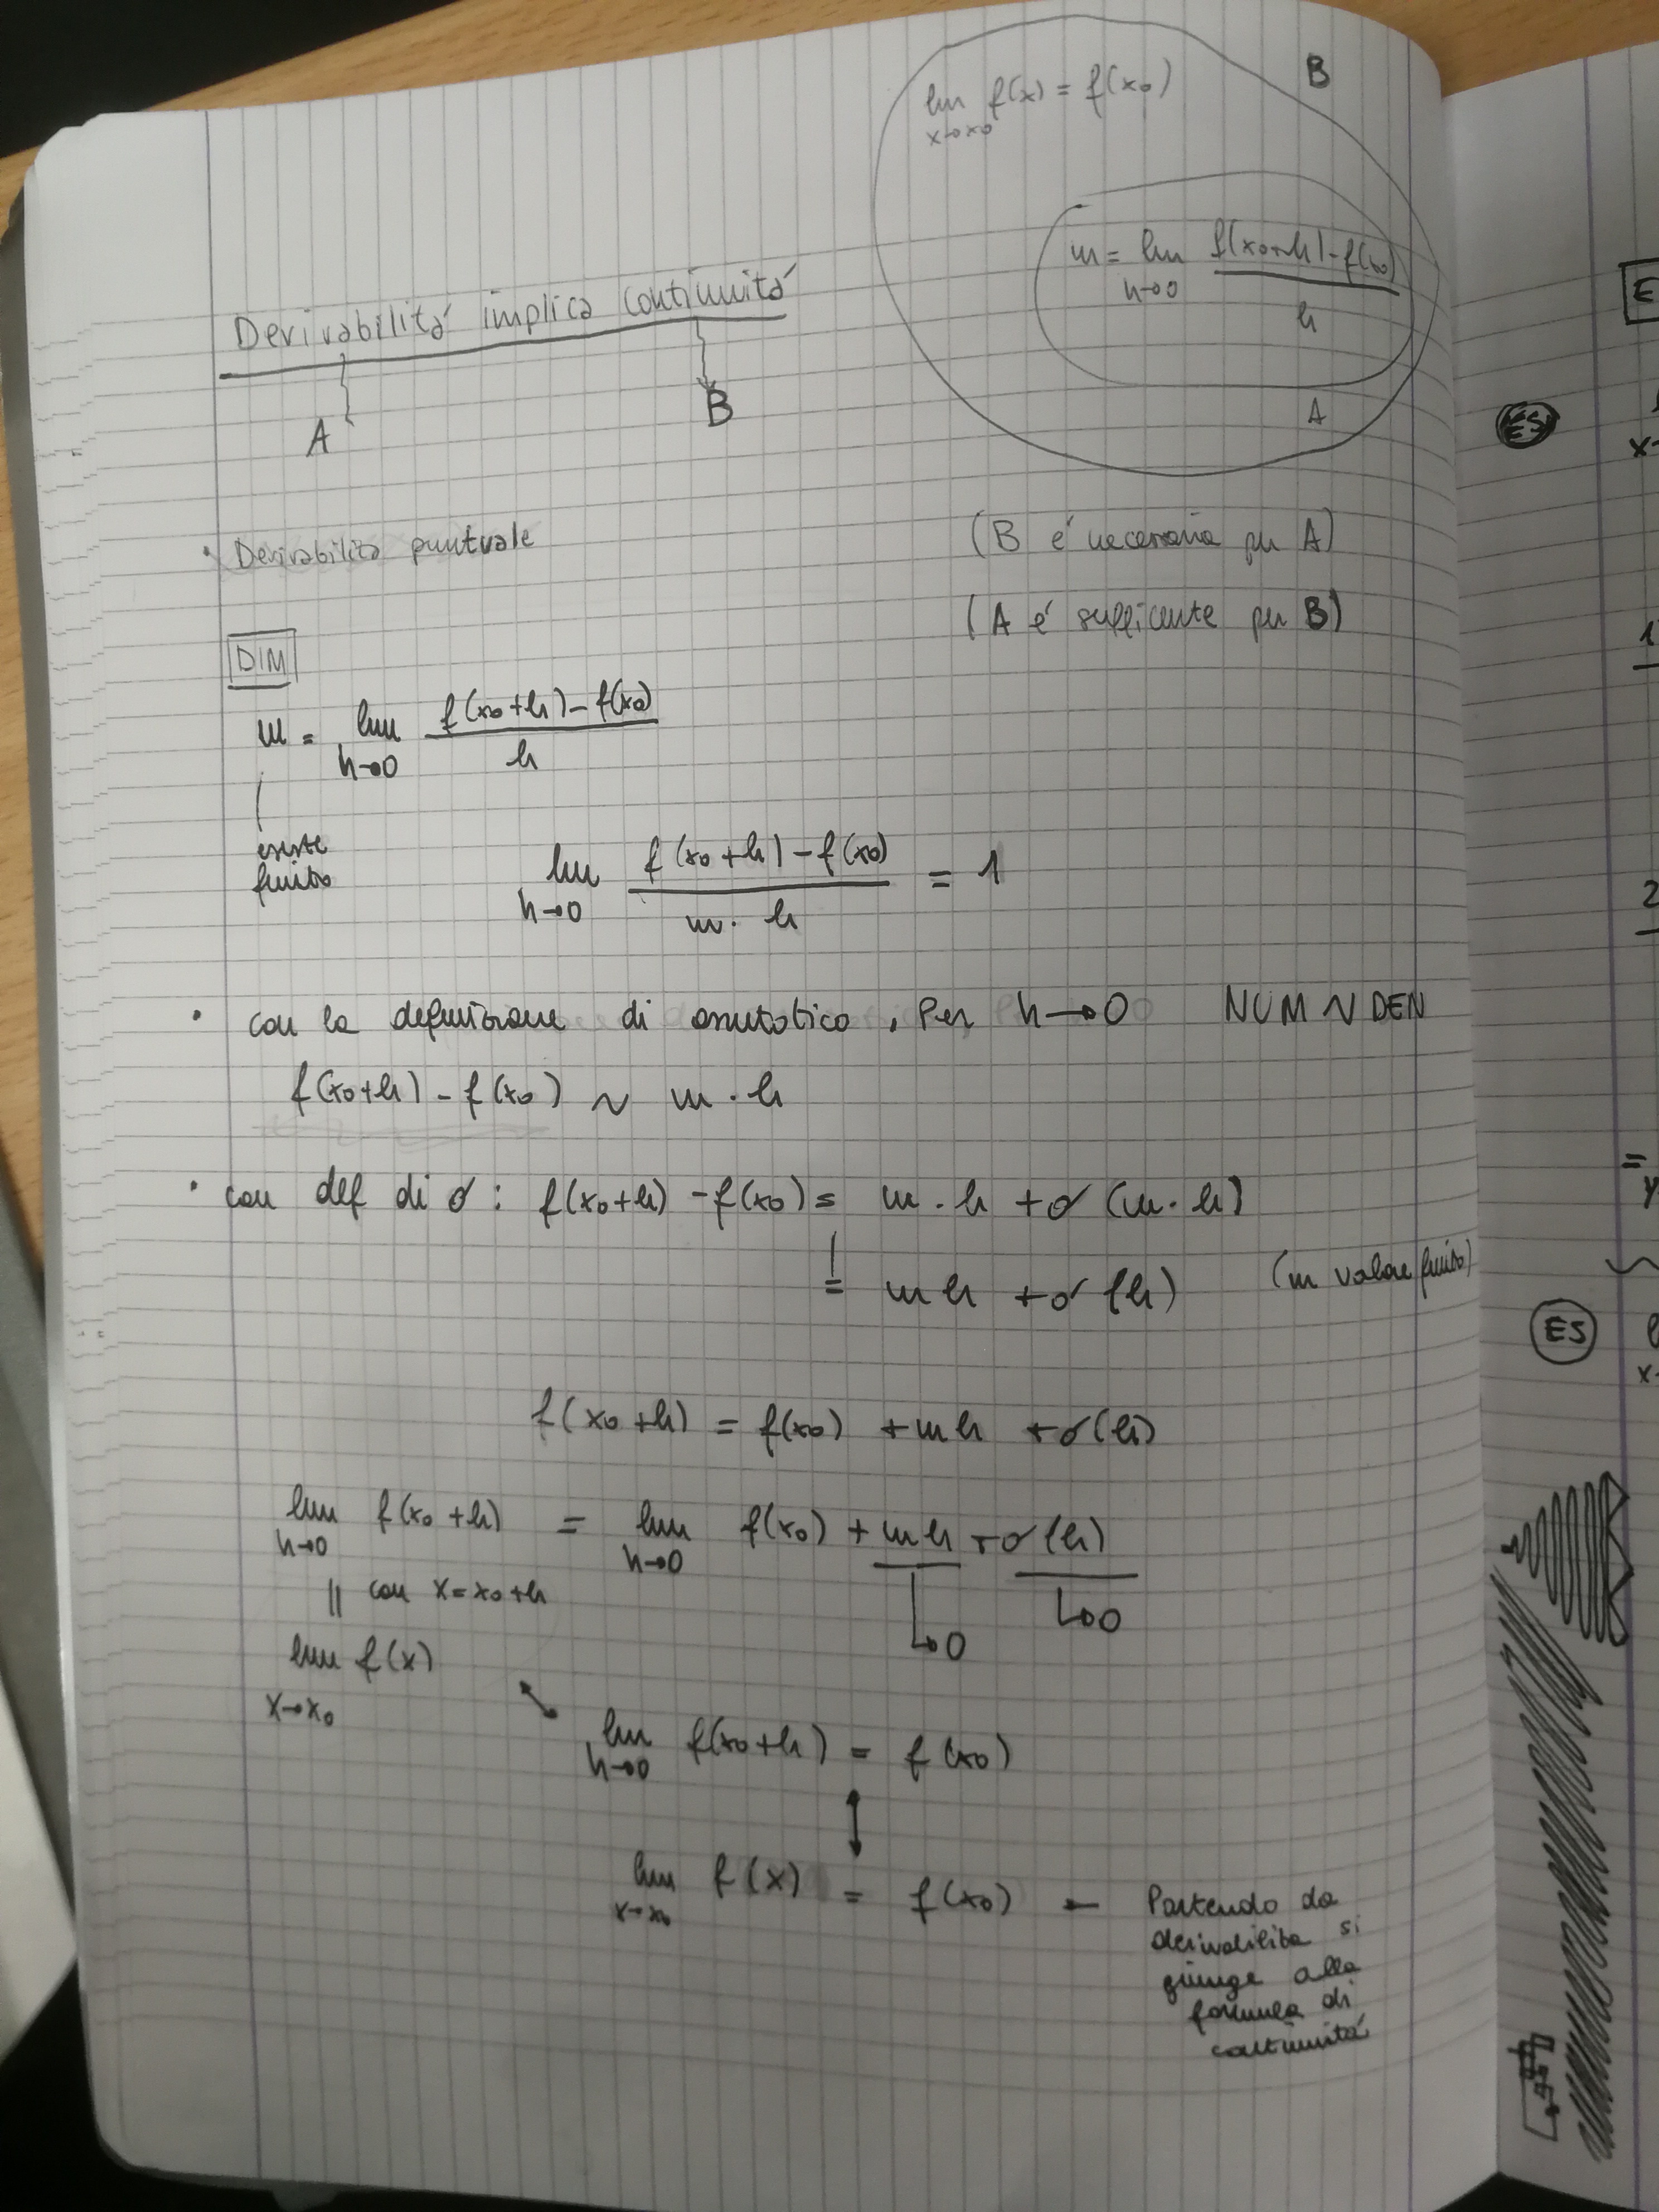 lim f(x) = f(x₀)
x→x₀
B
m = lim f(x₀+h)-f(x₀)
h→0 h
A
Derivabilitá implica continuitá
A B
• Derivabilita puntuale
(B é necessaria per A)
(A é sufficente per B)
DIM
m = lim f(x₀+h)-f(x₀)
h→0 h
esiste
finito
lim f(x₀+h)-f(x₀) = 1
h→0 m · h
• con la definizione di asintotico, Per h→0 NUM ~ DEN
f(x₀+h) - f(x₀) ~ m · h
• con def di o : f(x₀+h) - f(x₀) = m · h + o (m · h)
= m h + o (h) (m valore finito)
f(x₀+h) = f(x₀) + m h + o(h)
lim f(x₀+h) = lim f(x₀) + m h + o(h)
h→0 h→0
|| con x = x₀+h
↳0 ↳0
lim f(x)
x→x₀
lim f(x₀+h) = f(x₀)
h→0
↕
lim f(x) = f(x₀) ← Partendo da
x→x₀
derivabilita si
giunge alla
formula di
continuitá
E
ES
x→
1
2
=
y
ES
x→